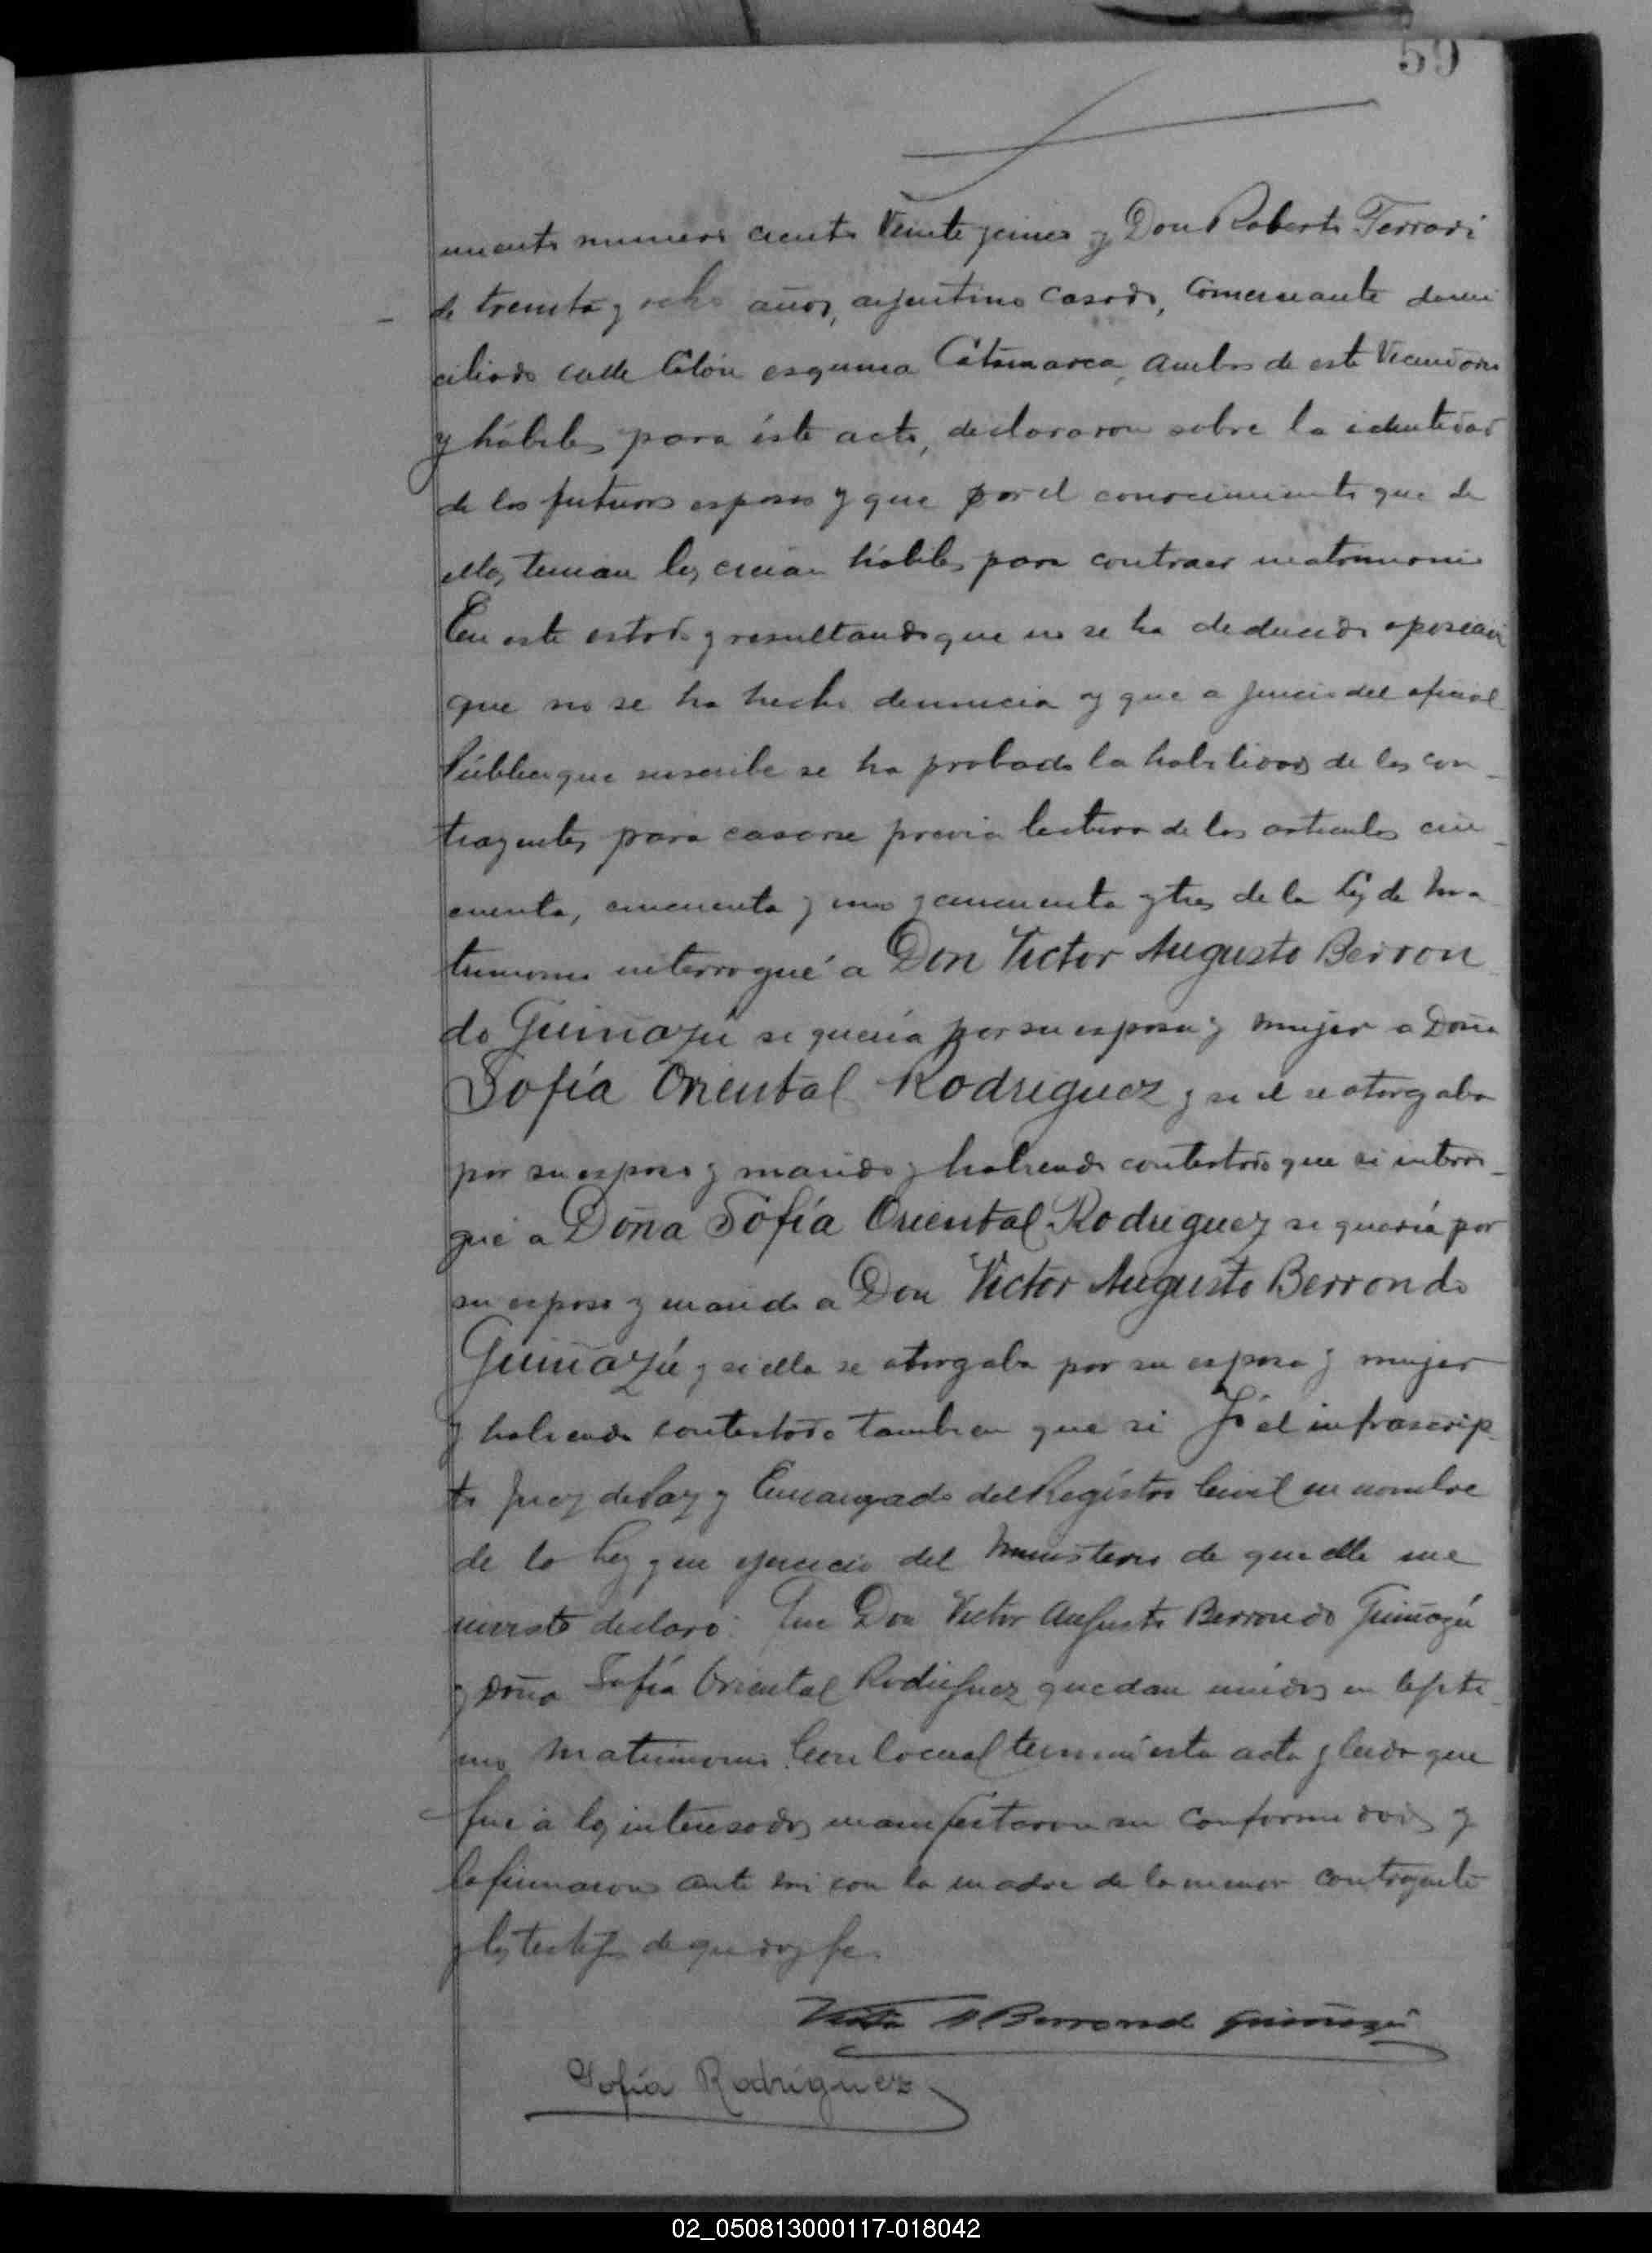 59
numero ciento veinte y cinco y Don Roberto Ferrari
de treinta y ocho años, argentino casado, comerciante domi
ciliado calle Colón esquina Catamarca, ambos de este vecindario
y hábiles para éste acto, declararon sobre la identidad
de los futuros esposos y que por el conocimiento que de
ellos tenian los creian hábiles para contraer matrimonio
En este estado y resultando que no se ha deducido oposición
que no se ha hecho denuncia y que a juicio del oficial
Público que suscribe se ha probado la habilidad de los con-
trayentes para casarse previa lectura de los articulos cin-
cuenta, cincuenta y uno y cincuenta y tres de la Ley de Ma
trimonio interrogué a Don Victor Augusto Berron
do Guiñazú si queria por su esposa y mujer a Doña
Sofía Oriental Rodriguez y si el se otorgaba
por su esposo y marido y habiendo contestado que si interro-
gué a Doña Sofía Oriental Rodriguez si quería por
su esposo y marido a Don Victor Augusto Berrondo
Guiñazú y si ella se otorgaba por su esposa y mujer
y habiendo contestado tambien que si Yo el infrascrip-
to Juez de Paz y Encargado del Registro Civil en nombre
de la Ley y en ejercicio del Ministerio de que ella me
inviste declaro: Que Don Victor Augusto Berrondo Guiñazú
y Doña Sofía Oriental Rodriguez quedan unidos en legiti-
mo Matrimonio. Con lo cual terminó esta acta y leida que
fué a los interesados manifestaron su conformidad y
la firmaron ante mi con la madre de la menor contrayente
y los testigos de que doy fe.
Victor A Berrondo Guiñazú
Sofía Rodríguez
02_050813000117-018042